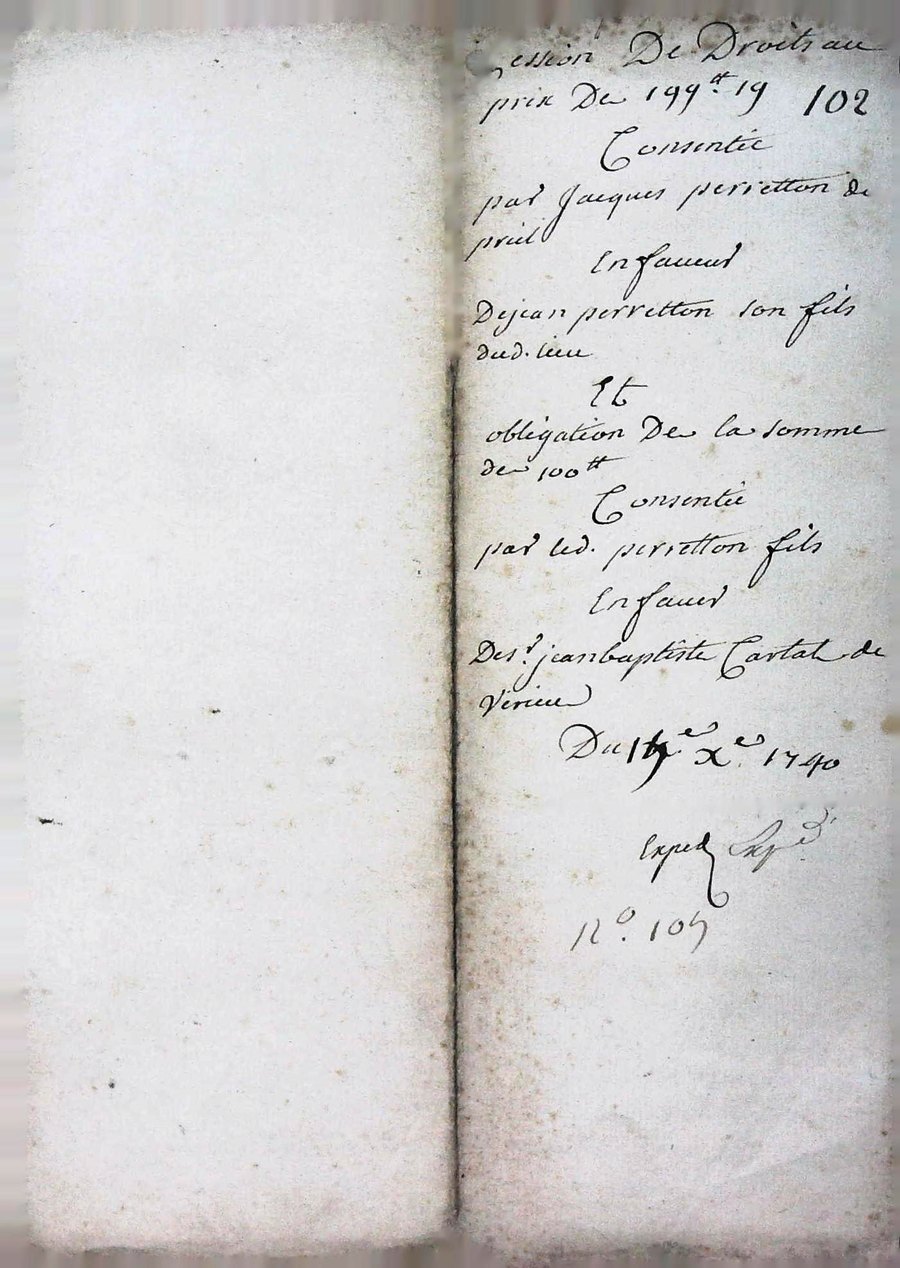 Cession De Droits au
prix De 199tt. 19 102
Consentie
par Jacques perretton de
En faueur
De jean perretton son fils
dud. lieu
Et
obligation De la somme
de 100tt
Consentie
par led. perretton fils
En faueur
De sr. jean baptiste Cartal de
Verieu
Du e. Xe. 1740
Exped Expéd
No. 105